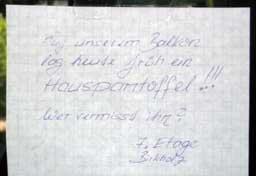 Auf unserem Balkon
lag heute früh ein
Hauspantoffel!!!
Wer vermisst ihn?
7. Etage